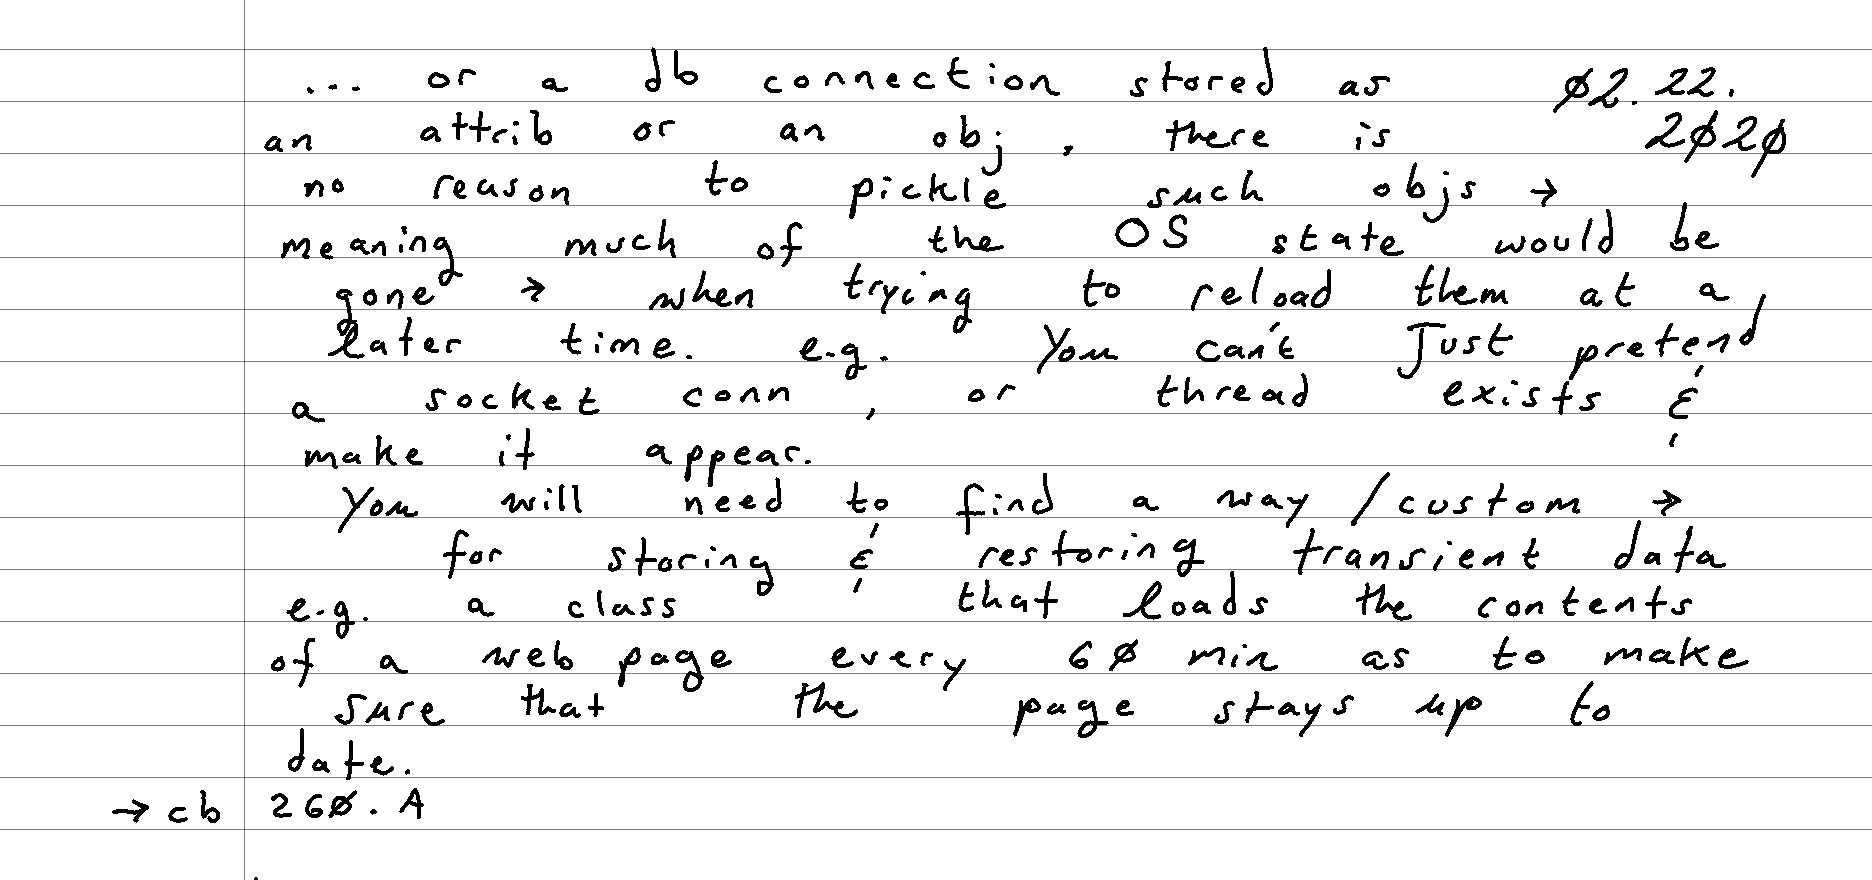 ... or a db connection stored as ø2.22.
an attrib or an obj, there is 2ø2ø
no reason to pickle such objs →
meaning much of the OS state would be
gone → when trying to reload them at a
later time. e.g. You can't Just pretend
a socket conn, or thread exists &
make it appear.
You will need to find a way / custom →
for storing & restoring transient data
e.g. a class that loads the contents
of a web page every 6ø min as to make
sure that the page stays up to
date.
→ cb 26ø. A